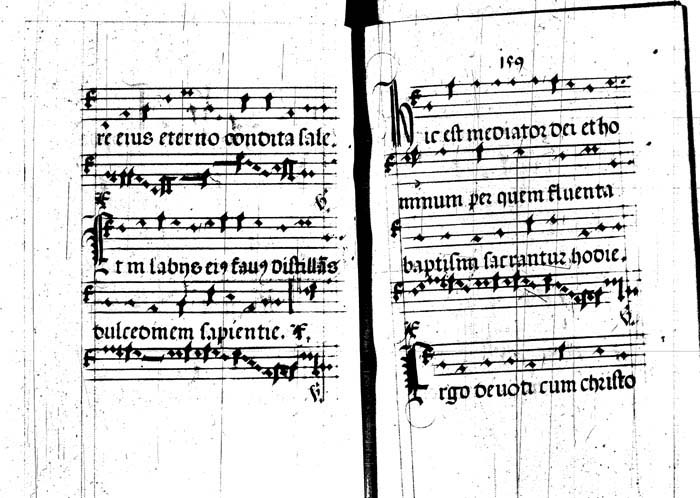 re eius eterno condita sale.
℣
Et in labijs ei9 fau9 distillãs
dulcedinem sapientie. ℟.
℣
159
Hic est mediator dei et ho
minum per quem fluenta
baptismi sacrantur hodie.
℣
Ergo deuoti cum christo